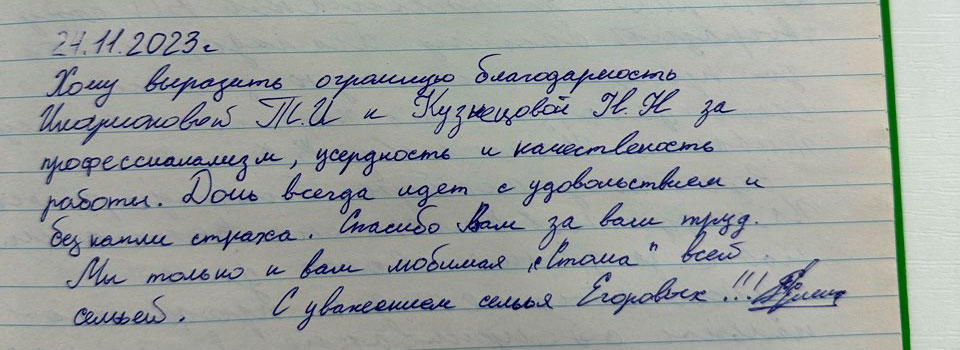 24.11.2023г
Хочу выразить огромную благодарность
Иларионовой Т.И и Кузнецовой Н.Н за
профессианализм, усердность и качественость
работы. Дочь всегда идет с удовольствием и
без капли страха. Спасибо Вам за ваш труд.
Мы только к вам любимая „Стома" всей
семьей. С уважением семья Егоровых !!!